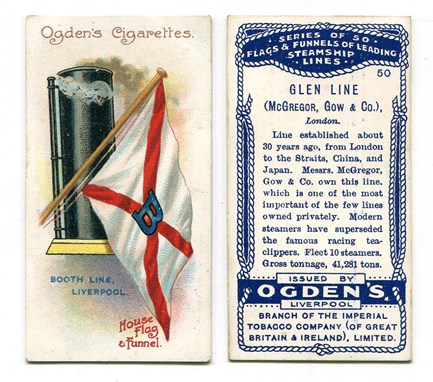 Ogden's Cigarettes.
B
BOOTH LINE,
LIVERPOOL.
House
Flag
& Funnel.
SERIES OF 50
FLAGS & FUNNELS OF LEADING
STEAMSHIP
LINES
50
GLEN LINE
(McGREGOR, GOW & Co.),
London.
Line established about
30 years ago, from London
to the Straits, China, and
Japan. Messrs. McGregor,
Gow & Co. own this line,
which is one of the most
important of the few lines
owned privately. Modern
steamers have superseded
the famous racing tea-
clippers. Fleet 10 steamers.
Gross tonnage, 41,281 tons.
ISSUED BY
OGDEN'S,
LIVERPOOL
BRANCH OF THE IMPERIAL
TOBACCO COMPANY (OF GREAT
BRITAIN & IRELAND), LIMITED.